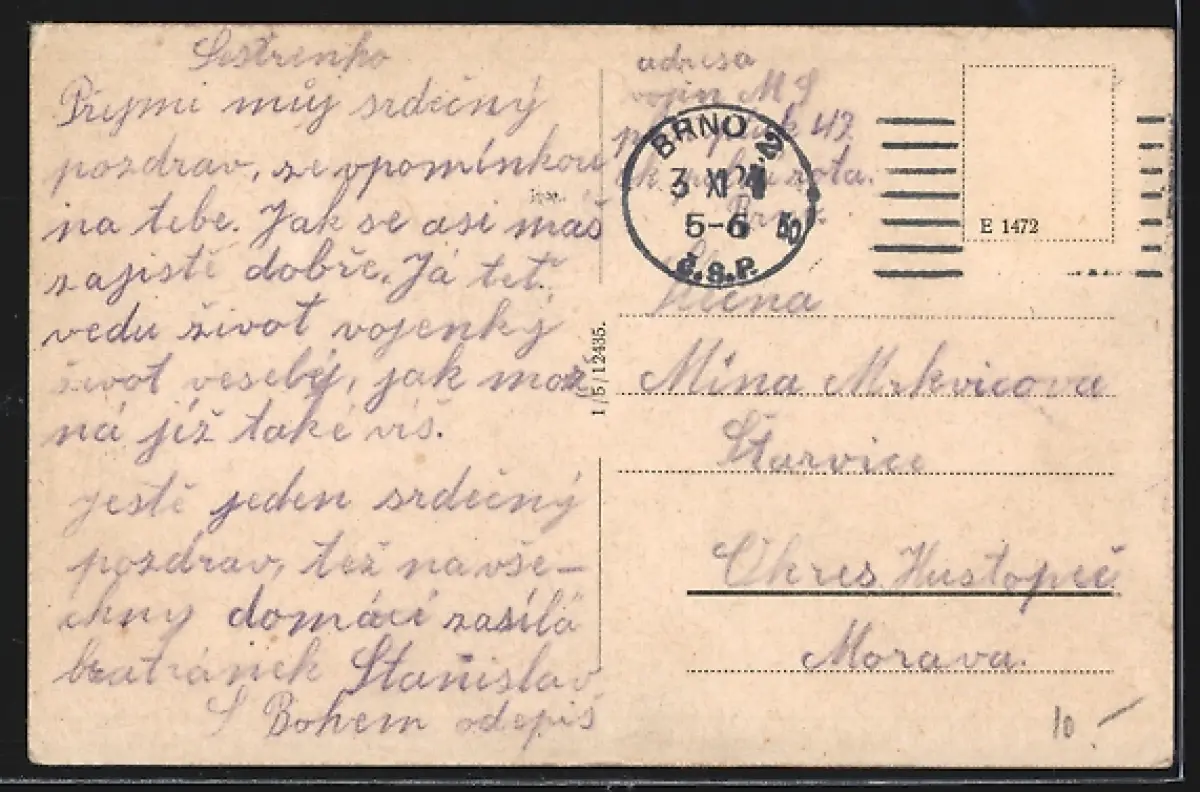 Sestrenko
Přijmi můj srdečný
pozdrav, se vpomínkou
na tebe. Jak se asi máš
zajistě dobře. Já teť
vedu život vojenký
život veselý, jak mož
ná již také víš.
ještě jeden srdečný
pozdrav, též na vše-
chny domácí zasílá
bratránek Stanislav
S Bohem odepiš
adresa
vojín M S
pluk 43
rota.
BRNO 2
3 XI 24
5-6
Č.S.P.
E 1472
1/5/12435.
Slečna
Mina Mrkvicova
Starvice
Okres Hustopeč
Morava.
10 -